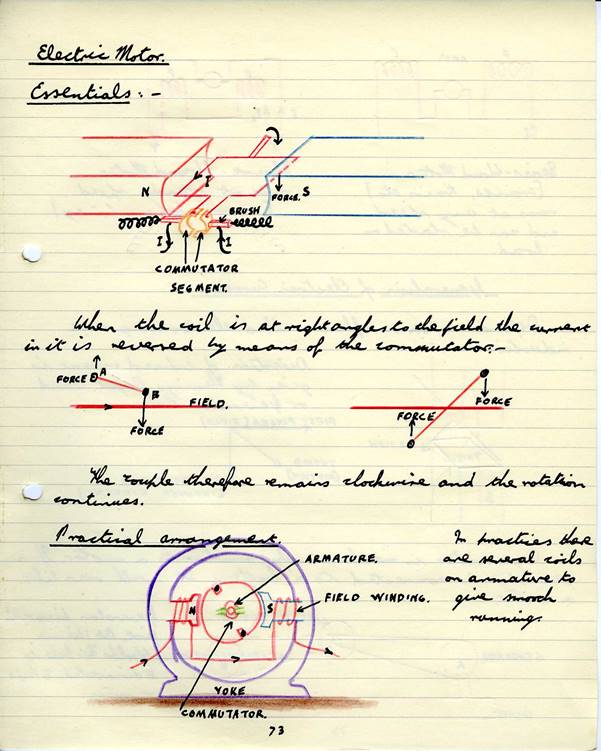 Electric Motor.
Essentials:-
N
I
FORCE.
S
BRUSH
I
I
COMMUTATOR
SEGMENT.
When the coil is at right angles to the field the current
in it is reversed by means of the commutator:-
FORCE
A
B
FIELD.
FORCE
FORCE
FORCE
The couple therefore remains clockwise and the rotation
continues.
Practical arrangement.
In practice there
are several coils
on armature to
give smooth
running.
ARMATURE.
N
S
FIELD WINDING.
YOKE
COMMUTATOR.
73